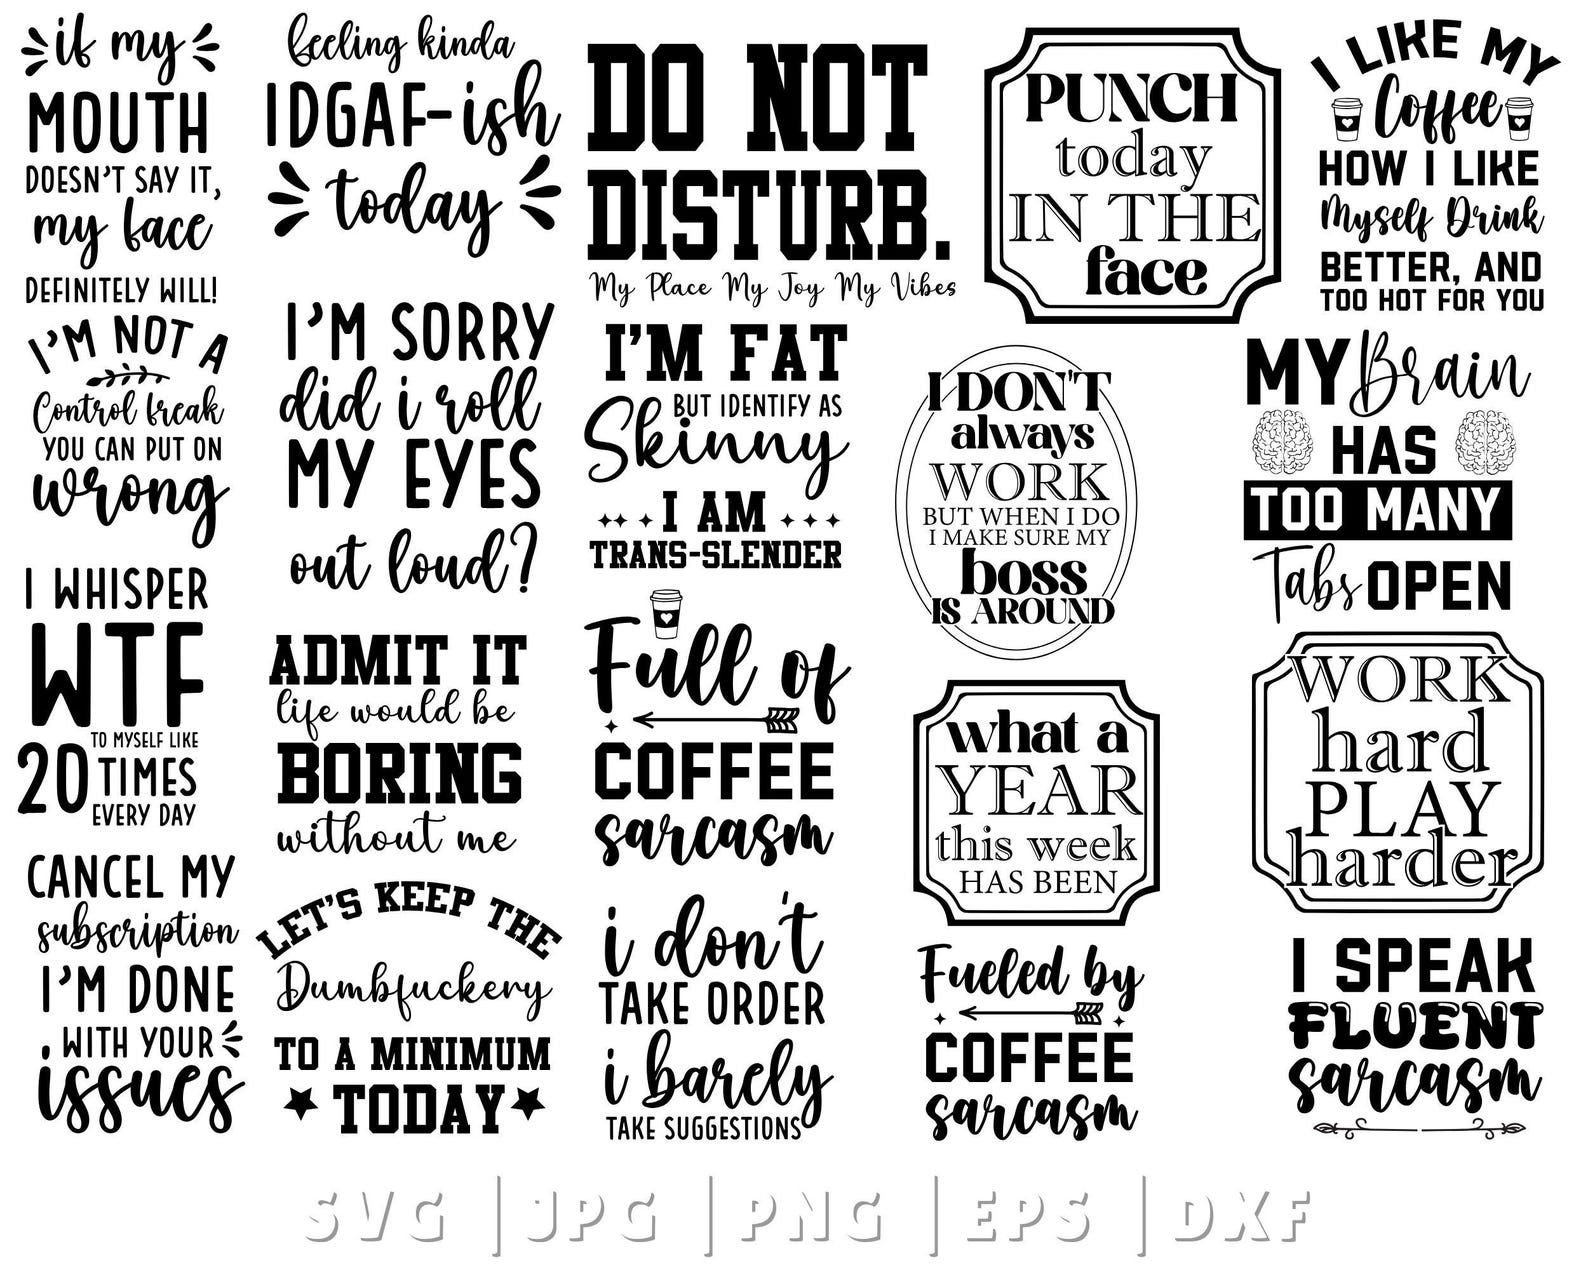 if my
MOUTH
DOESN'T SAY IT,
my face
DEFINITELY WILL!
I'M NOT A
Control freak
YOU CAN PUT ON
wrong
I WHISPER
WTF
TO MYSELF LIKE
20 TIMES
EVERY DAY
CANCEL MY
subscription
I'M DONE
WITH YOUR
issues
feeling kinda
IDGAF-ish
today
I'M SORRY
did i roll
MY EYES
out loud?
ADMIT IT
life would be
BORING
without me
LET'S KEEP THE
Dumbfuckery
TO A MINIMUM
TODAY
DO NOT
DISTURB.
My Place My Joy My Vibes
I'M FAT
BUT IDENTIFY AS
Skinny
I AM
TRANS-SLENDER
Full of
COFFEE
sarcasm
i don't
TAKE ORDER
i barely
TAKE SUGGESTIONS
PUNCH
today
IN THE
face
I DON'T
always
WORK
BUT WHEN I DO
I MAKE SURE MY
boss
IS AROUND
what a
YEAR
this week
HAS BEEN
Fueled by
COFFEE
sarcasm
I LIKE MY
Coffee
HOW I LIKE
Myself Drink
BETTER, AND
TOO HOT FOR YOU
MY Brain
HAS
TOO MANY
Tabs OPEN
WORK
hard
PLAY
harder
I SPEAK
FLUENT
sarcasm
SVG | JPG | PNG | EPS | DXF